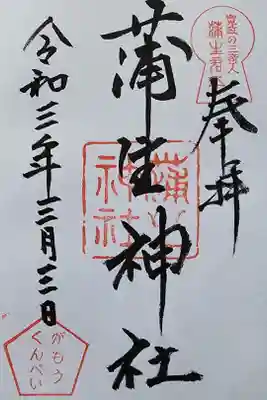 寛政の三奇人
蒲生君平
奉拝
蒲生神社
蒲生
神社
令和三年三月三日
がもう
くんぺい